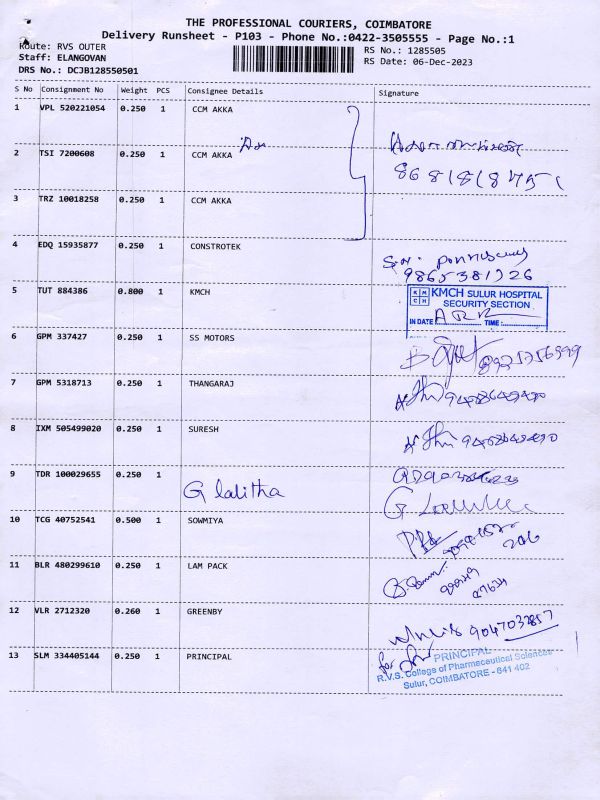 THE PROFESSIONAL COURIERS, COIMBATORE
Delivery Runsheet - P103 - Phone No.:0422-3505555 - Page No.:1
Route: RVS OUTER
RS No.: 1285505
Staff: ELANGOVAN
RS Date: 06-Dec-2023
DRS No.: DCJB128550501
S No Consignment No Weight PCS Consignee Details Signature
1 VPL 520221054 0.250 1 CCM AKKA
2 TSI 7200608 0.250 1 CCM AKKA
3 TRZ 10018258 0.250 1 CCM AKKA
4 EDQ 15935877 0.250 1 CONSTROTEK
9865381926
5 TUT 884386 0.800 1 KMCH
KMCH SULUR HOSPITAL
SECURITY SECTION
IN DATE TIME:
6 GPM 337427 0.250 1 SS MOTORS
7 GPM 5318713 0.250 1 THANGARAJ
8 IXM 505499020 0.250 1 SURESH
9 TDR 100029655 0.250 1 G lalitha
10 TCG 40752541 0.500 1 SOWMIYA
11 BLR 480299610 0.250 1 LAM PACK
12 VLR 2712320 0.260 1 GREENBY
9047032857
13 SLM 334405144 0.250 1 PRINCIPAL
for
PRINCIPAL
R.V.S. College of Pharmaceutical Sciences
Sulur, COIMBATORE - 641 402